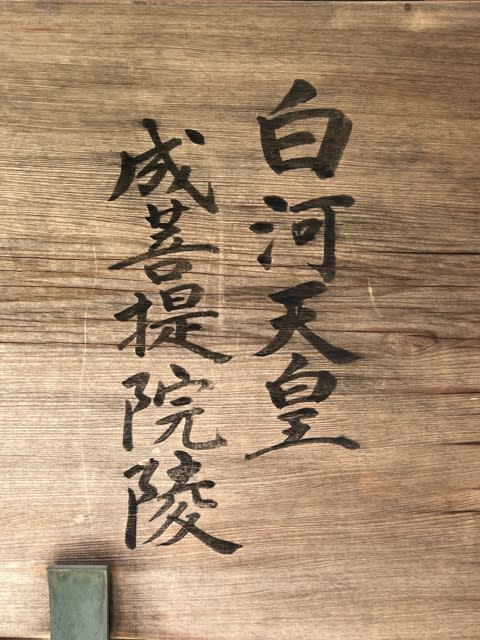 白河天皇
成菩提院陵